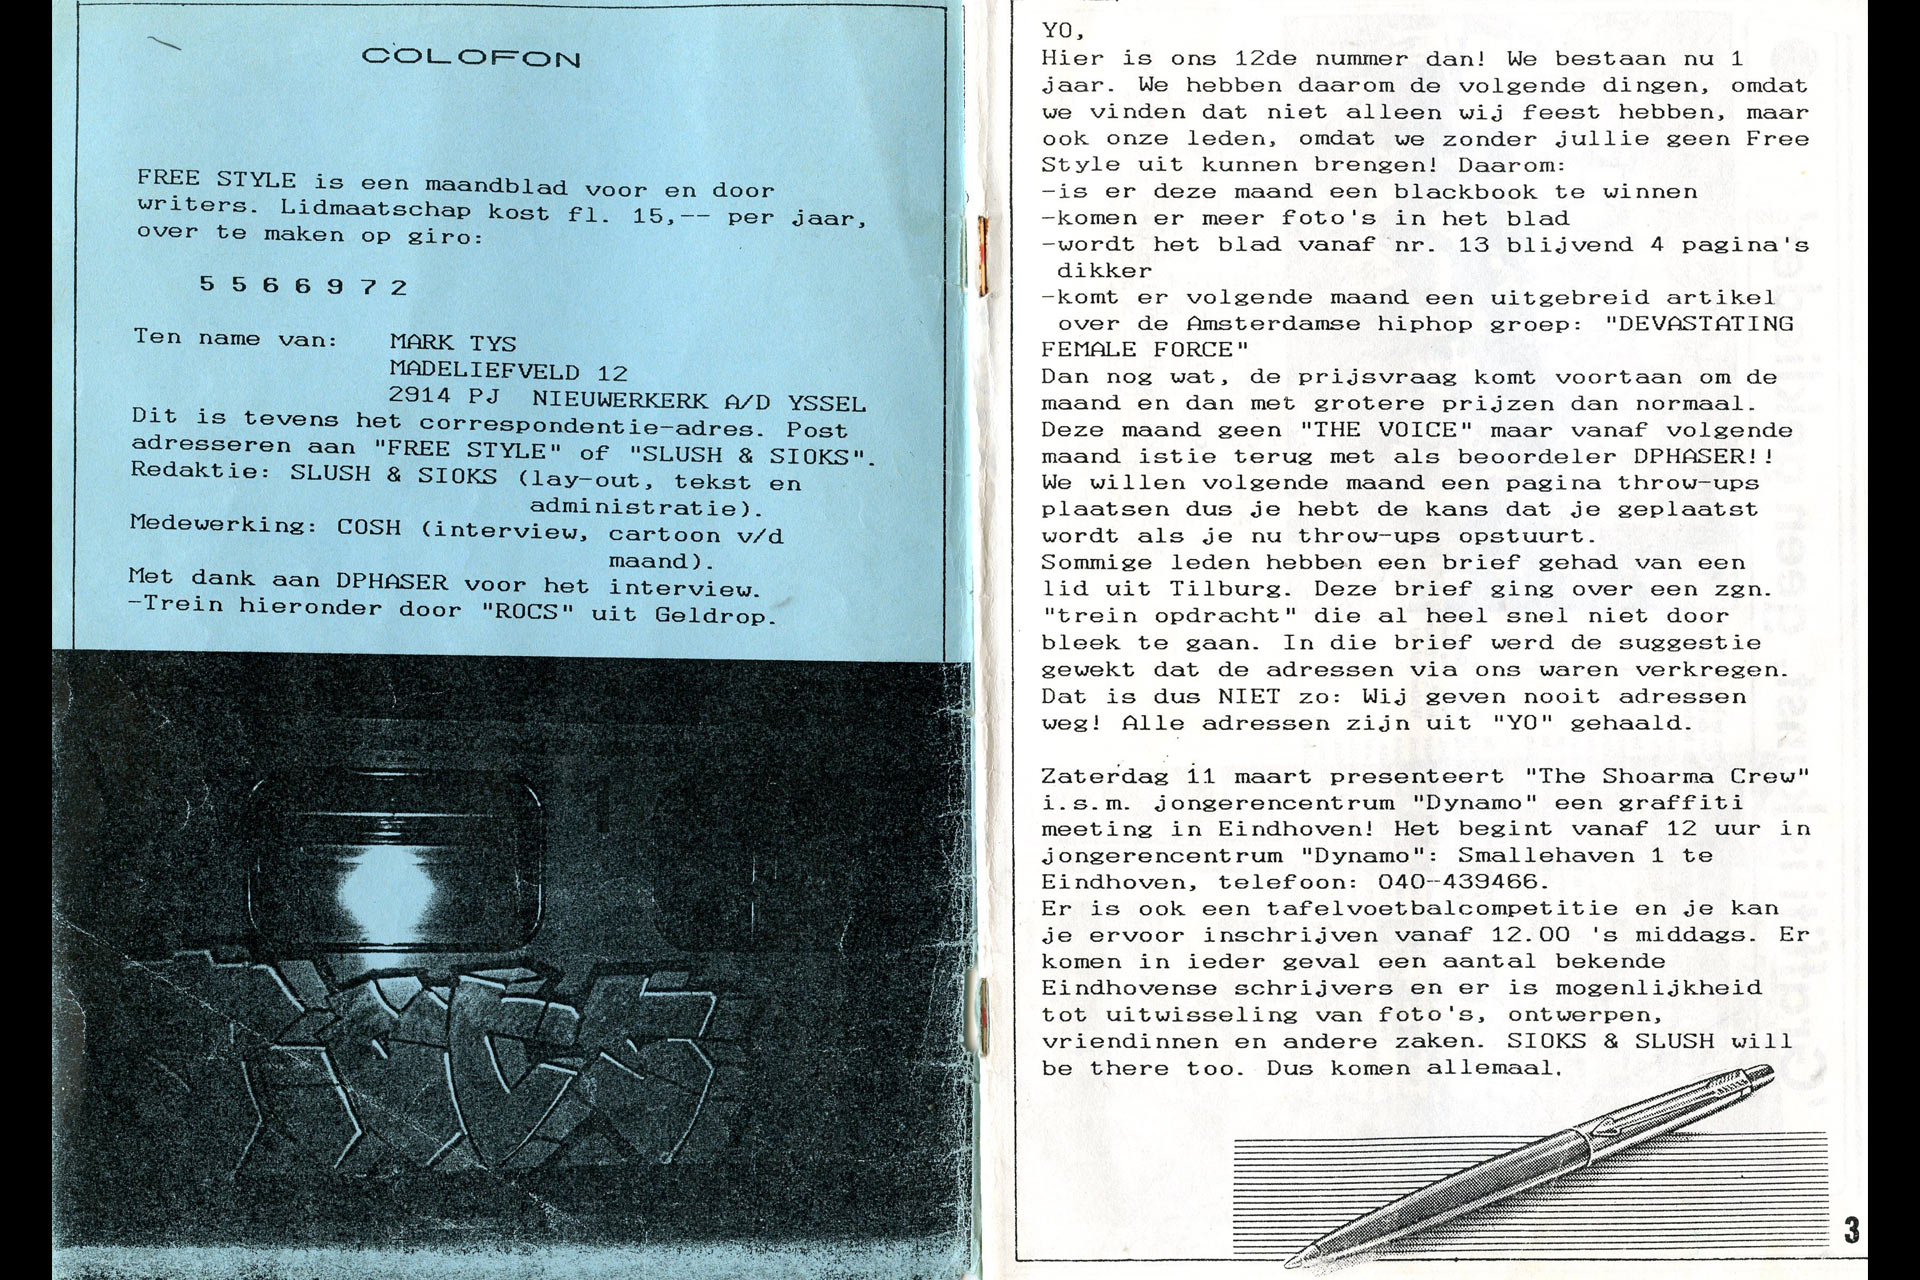 COLOFON
FREE STYLE is een maandblad voor en door
writers. Lidmaatschap kost fl. 15,-- per jaar,
over te maken op giro:
5 5 6 6 9 7 2
Ten name van: MARK TYS
MADELIEFVELD 12
2914 PJ NIEUWERKERK A/D YSSEL
Dit is tevens het correspondentie-adres. Post
adresseren aan "FREE STYLE" of "SLUSH & SIOKS".
Redaktie: SLUSH & SIOKS (lay-out, tekst en
administratie).
Medewerking: COSH (interview, cartoon v/d
maand).
Met dank aan DPHASER voor het interview.
-Trein hieronder door "ROCS" uit Geldrop.
YO,
Hier is ons 12de nummer dan! We bestaan nu 1
jaar. We hebben daarom de volgende dingen, omdat
we vinden dat niet alleen wij feest hebben, maar
ook onze leden, omdat we zonder jullie geen Free
Style uit kunnen brengen! Daarom:
-is er deze maand een blackbook te winnen
-komen er meer foto's in het blad
-wordt het blad vanaf nr. 13 blijvend 4 pagina's
dikker
-komt er volgende maand een uitgebreid artikel
over de Amsterdamse hiphop groep: "DEVASTATING
FEMALE FORCE"
Dan nog wat, de prijsvraag komt voortaan om de
maand en dan met grotere prijzen dan normaal.
Deze maand geen "THE VOICE" maar vanaf volgende
maand istie terug met als beoordeler DPHASER!!
We willen volgende maand een pagina throw-ups
plaatsen dus je hebt de kans dat je geplaatst
wordt als je nu throw-ups opstuurt.
Sommige leden hebben een brief gehad van een
lid uit Tilburg. Deze brief ging over een zgn.
"trein opdracht" die al heel snel niet door
bleek te gaan. In die brief werd de suggestie
gewekt dat de adressen via ons waren verkregen.
Dat is dus NIET zo: Wij geven nooit adressen
weg! Alle adressen zijn uit "YO" gehaald.
Zaterdag 11 maart presenteert "The Shoarma Crew"
i.s.m. jongerencentrum "Dynamo" een graffiti
meeting in Eindhoven! Het begint vanaf 12 uur in
jongerencentrum "Dynamo": Smallehaven 1 te
Eindhoven, telefoon: 040-439466.
Er is ook een tafelvoetbalcompetitie en je kan
je ervoor inschrijven vanaf 12.00 's middags. Er
komen in ieder geval een aantal bekende
Eindhovense schrijvers en er is mogenlijkheid
tot uitwisseling van foto's, ontwerpen,
vriendinnen en andere zaken. SIOKS & SLUSH will
be there too. Dus komen allemaal.
3